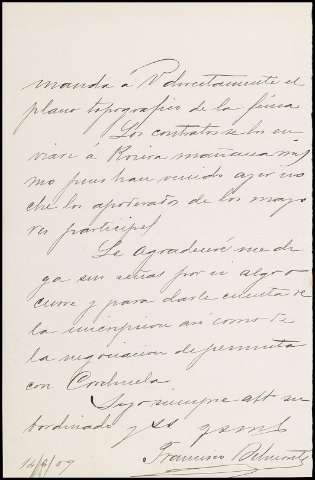 manda á V directamente el
plano topografico de la finca
Los contratos se los en
viaré á Rovira mañana mis
mo pues han venido ayer no
che los apoderados de los mayo
res participes
Le agradeceré me di
ga sus señas por si algo o
curre y para darle cuenta de
la inscripcion asi como de
la negociacion de permuta
con Conchuela
Suyo siempre att su
bordinado y SS q s m b
Francisco Belmonte
14/6/09